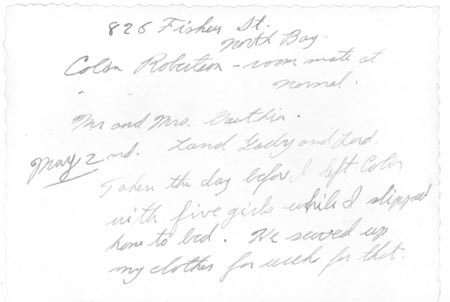 826 Fisher St.
North Bay.
Colen Robertson - room mate at
normal.
Mr and Mrs. Gauthier.
May 2nd. Land Lady and Lord.
Taken the day before I left Colen
with five girls while I slipped
home to bed. We saved up
my clothes for weeks for that.